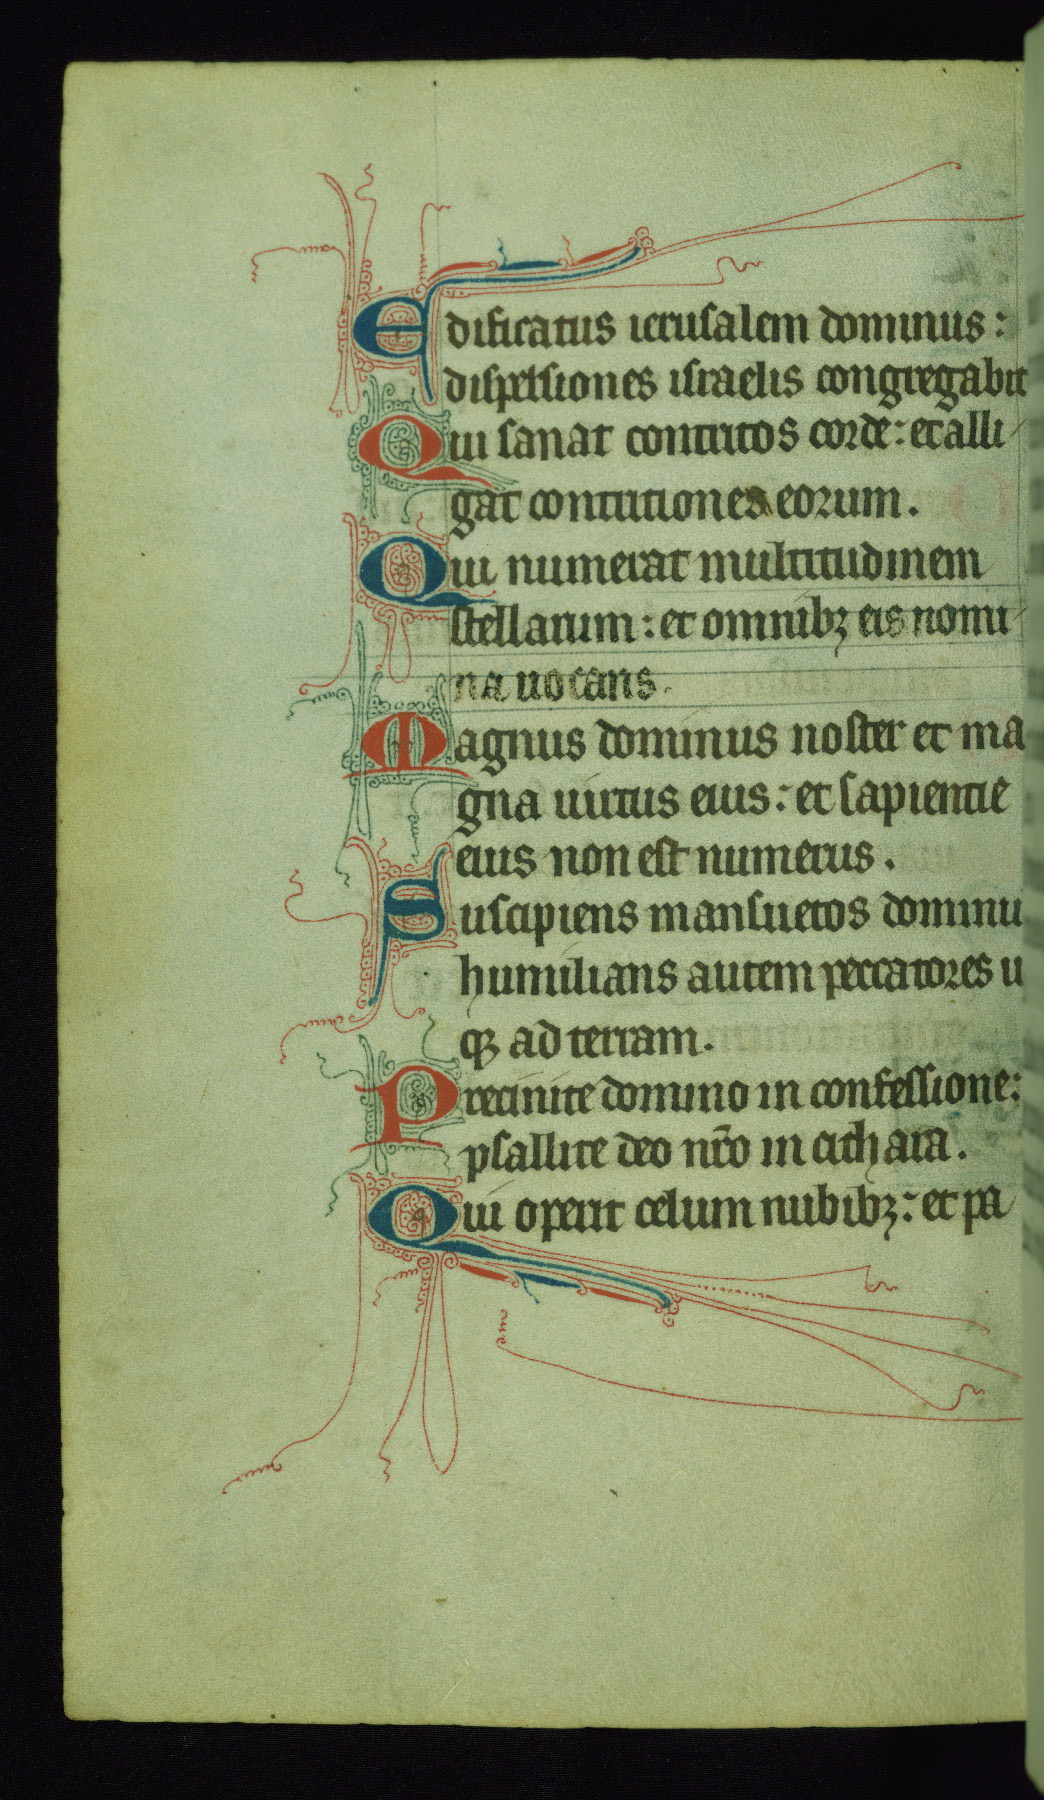 Edificatus ierusalem dominus:
dispersiones israelis congregabit
Qui sanat contritos corde: et alli
gat contritiones eorum.
Qui numerat multitudinem
stellarum: et omnibꝫ eis nomi
na uocans.
Magnus dominus noster et ma
gna uirtus eius: et sapientie
eius non est numerus.
Suscipiens mansuetos dominu
humilians autem peccatores u
qꝫ ad terram.
Precinite domino in confessione:
psallite deo nr̄o in cithara.
Qui operit celum nubibꝫ: et pa